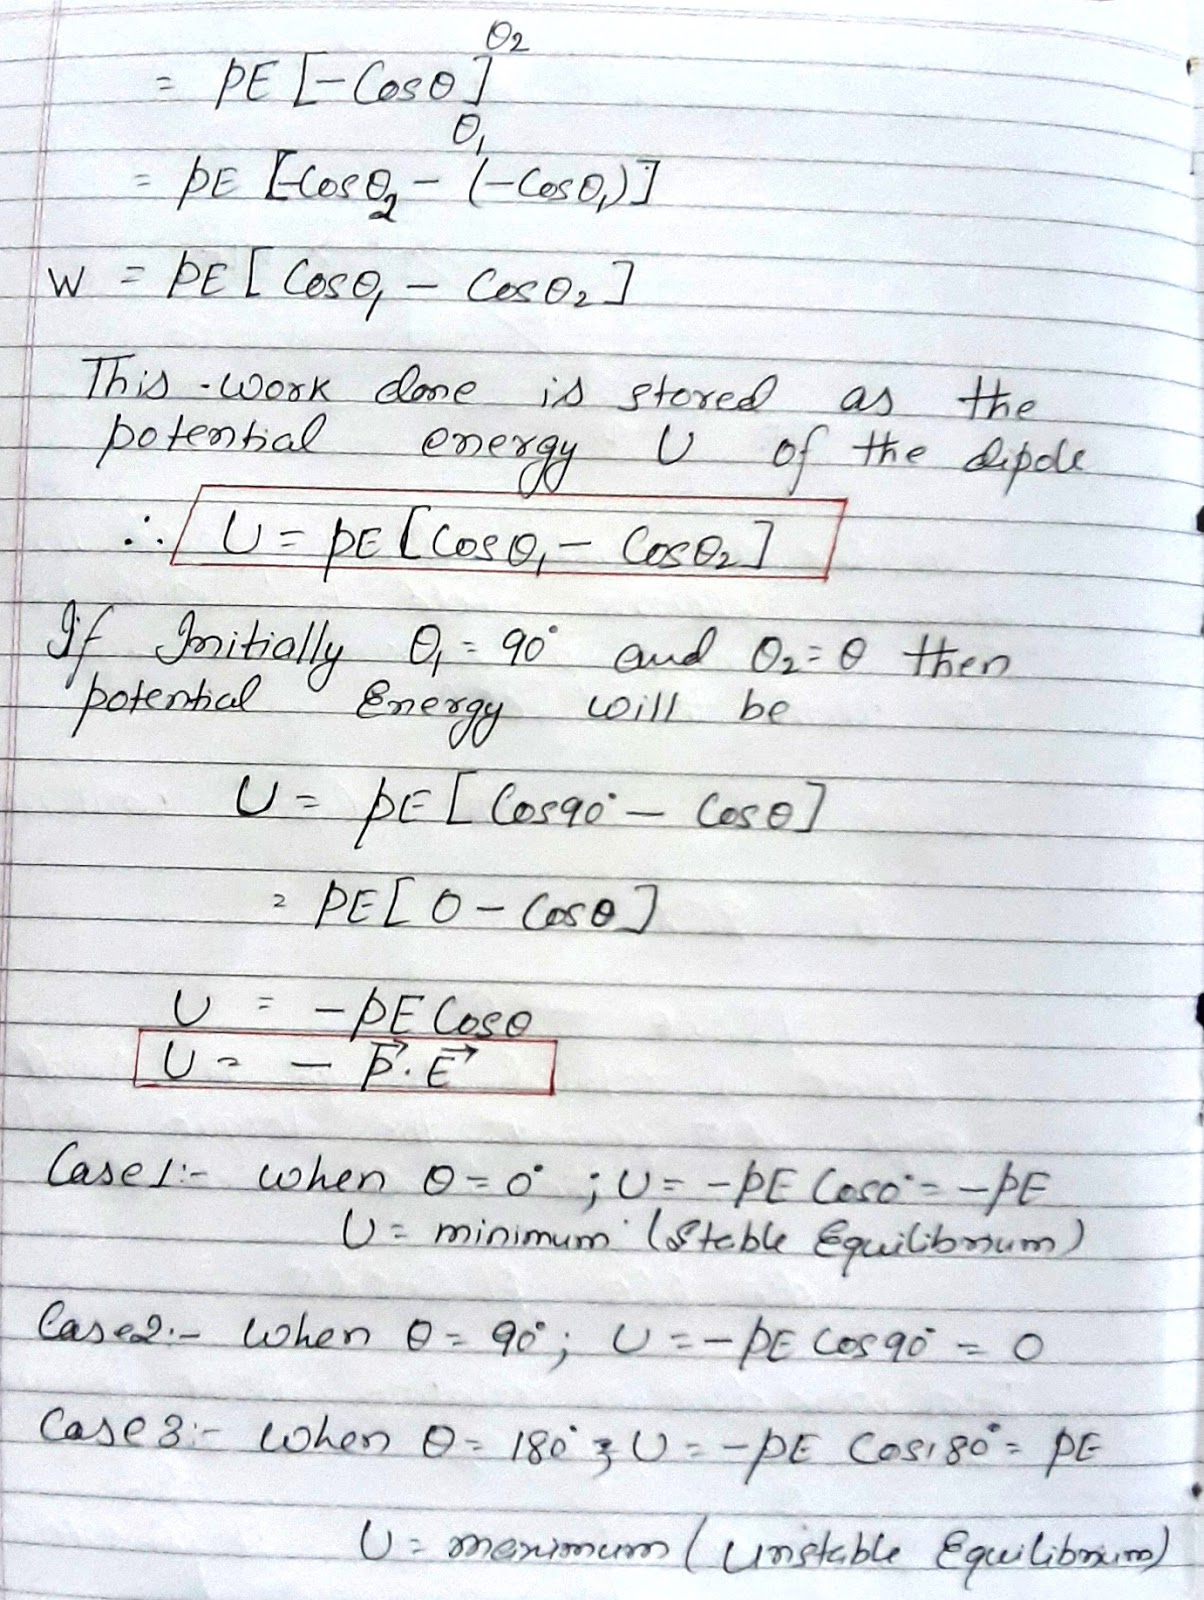 = pE [-Cosθ]θ₁^θ₂
= pE [-Cosθ₂ - (-Cosθ₁)]
W = pE [Cosθ₁ - Cosθ₂]
This work done is stored as the
potential energy U of the dipole
∴ U = pE [Cosθ₁ - Cosθ₂]
If Initially θ₁ = 90° and θ₂ = θ then
potential Energy will be
U = pE [Cos90° - Cosθ]
= pE [0 - Cosθ]
U = -pE Cosθ
U = - p⃗.E⃗
Case1:- when θ = 0° ; U = -pE Cos0° = -pE
U = minimum (Stable Equilibrium)
Case2:- when θ = 90° ; U = -pE Cos90° = 0
Case3:- when θ = 180° ; U = -pE Cos180° = pE
U = maximum (Unstable Equilibrium)